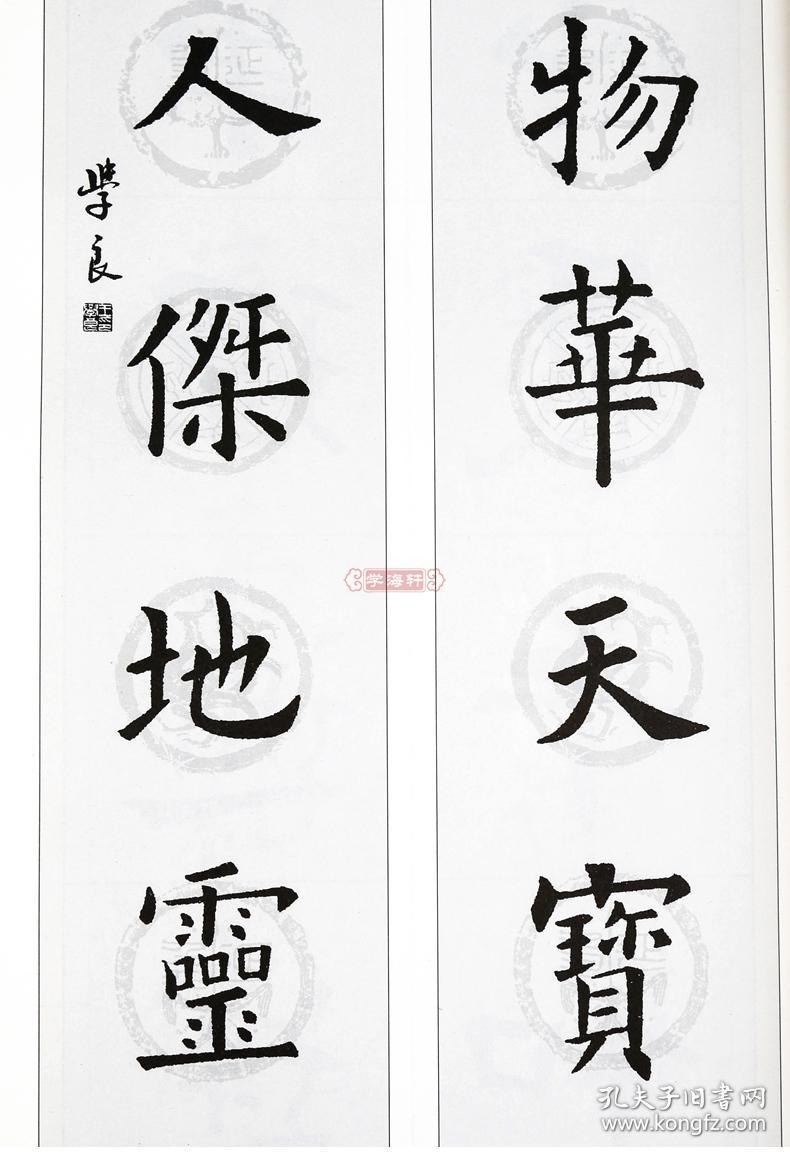 物華天寶
人傑地靈
學良
学海轩
孔夫子旧书网
www.kongfz.com